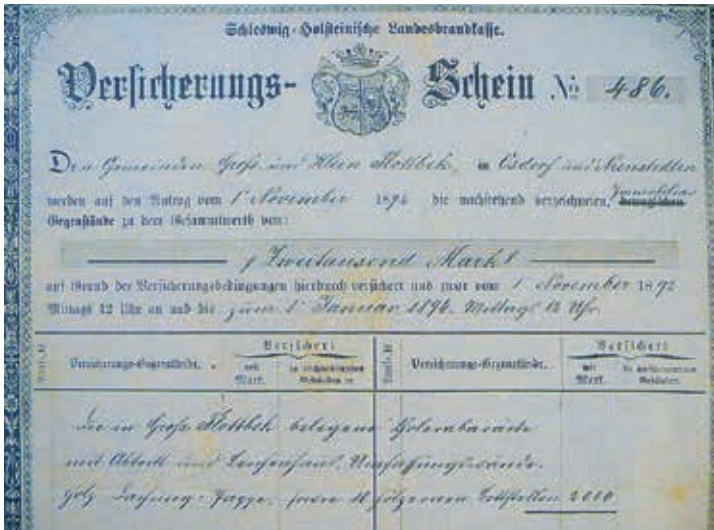 Schleswig-Holsteinische Landesbrandkasse.
Versicherungs-Schein No 486.
Den Gemeinden Groß und Klein Flottbek, in Osdorf und Nienstedten
werden auf den Antrag vom 1 November 1892 die nachstehend verzeichneten, Immobilien
Gegenstände zu dem Gesammtwerth von:
Zweitausend Mark
auf Grund der Versicherungsbedingungen hierdurch versichert und zwar vom 1 November 1892
Mittags 12 Uhr an und bis zum 1 Januar 1894. Mittags 12 Uhr.
Versichert Versichert
Versicherungs-Gegenstände. mit Mark. Versicherungs-Gegenstände. mit Mark.
die in Groß Flottbek belegene Cholerabaracke
mit Abtritt und Leichenhaus, Umfassungswände
Holz Dachung: Pappe, sowie 10 hölzernen Bettstellen 2000